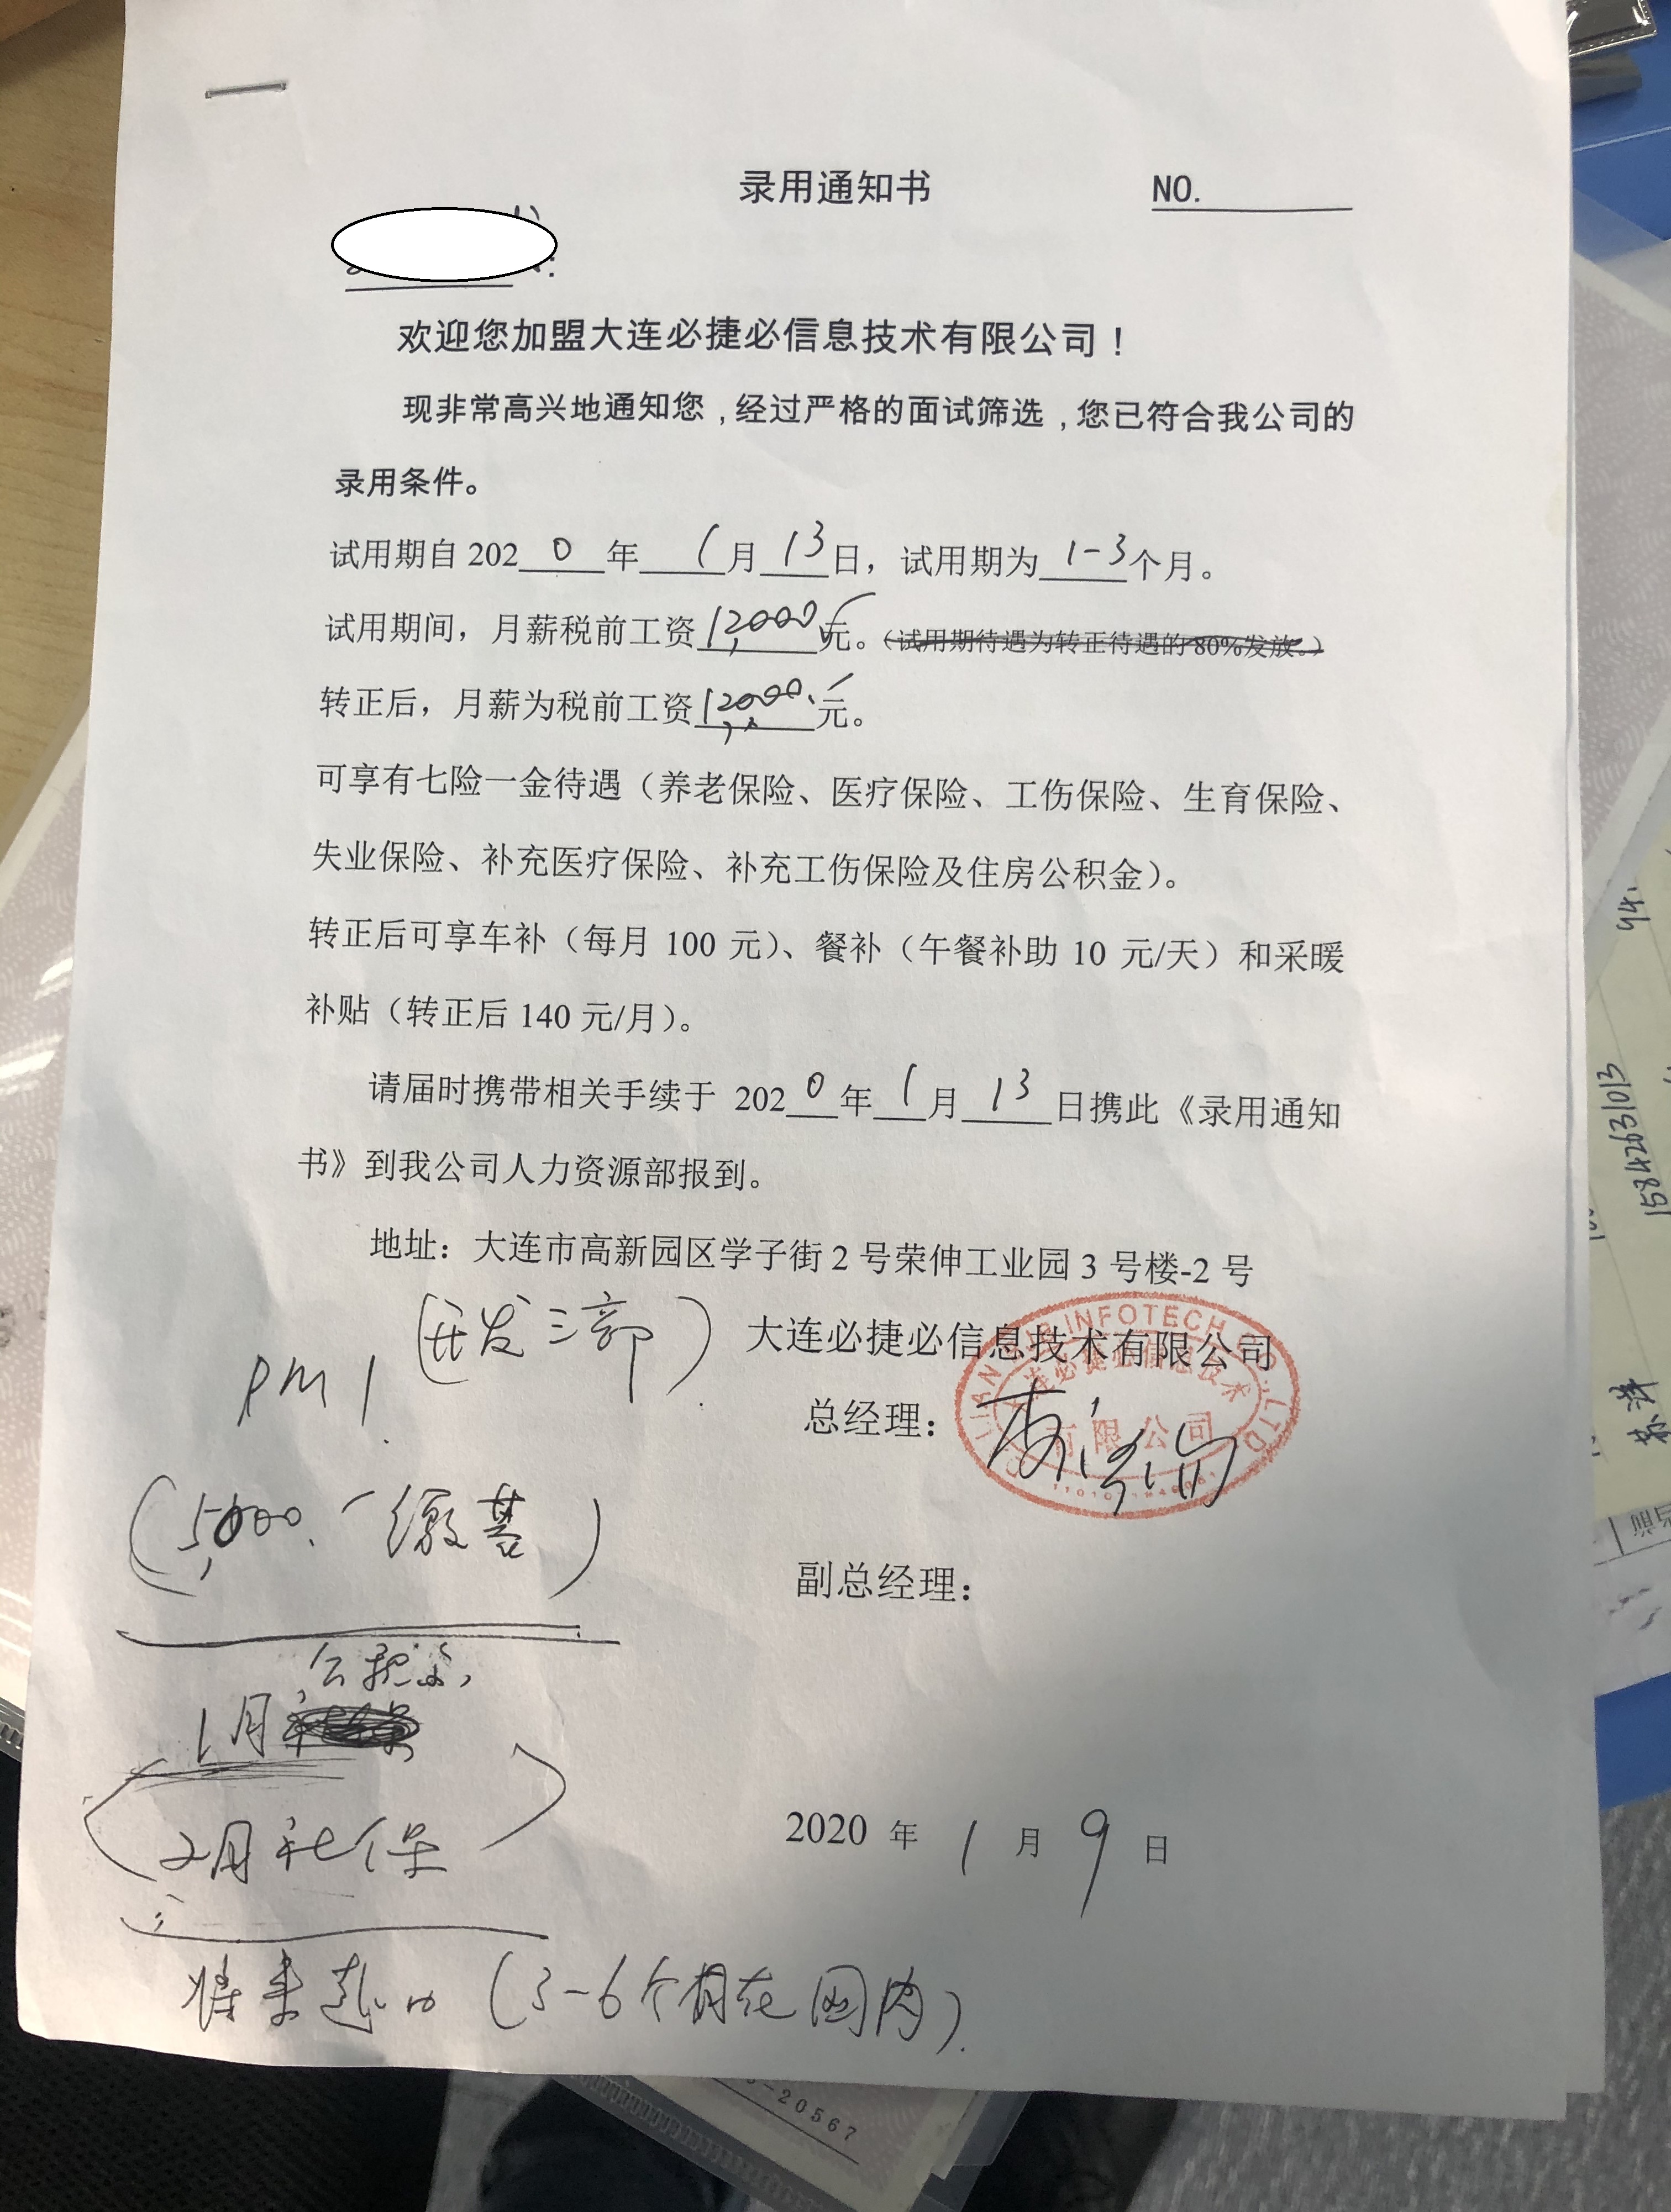 录用通知书 NO.
欢迎您加盟大连必捷必信息技术有限公司！
现非常高兴地通知您，经过严格的面试筛选，您已符合我公司的
录用条件。
试用期自2020年1月13日，试用期为1-3个月。
试用期间，月薪税前工资12000元。（试用期待遇为转正待遇的80%发放。）
转正后，月薪为税前工资12000元。
可享有七险一金待遇（养老保险、医疗保险、工伤保险、生育保险、
失业保险、补充医疗保险、补充工伤保险及住房公积金）。
转正后可享车补（每月100元）、餐补（午餐补助10元/天）和采暖
补贴（转正后140元/月）。
请届时携带相关手续于2020年1月13日携此《录用通知
书》到我公司人力资源部报到。
地址：大连市高新园区学子街2号荣伸工业园3号楼-2号
（开发三部）
大连必捷必信息技术有限公司
PM1
总经理：
有限公司
（5,000. 缴基）
副总经理：
公积金,
1月
2月社保
2020年1月9日
将来赴日（3-6个月在国内）.
15842631013
苏洋
94.
-20567